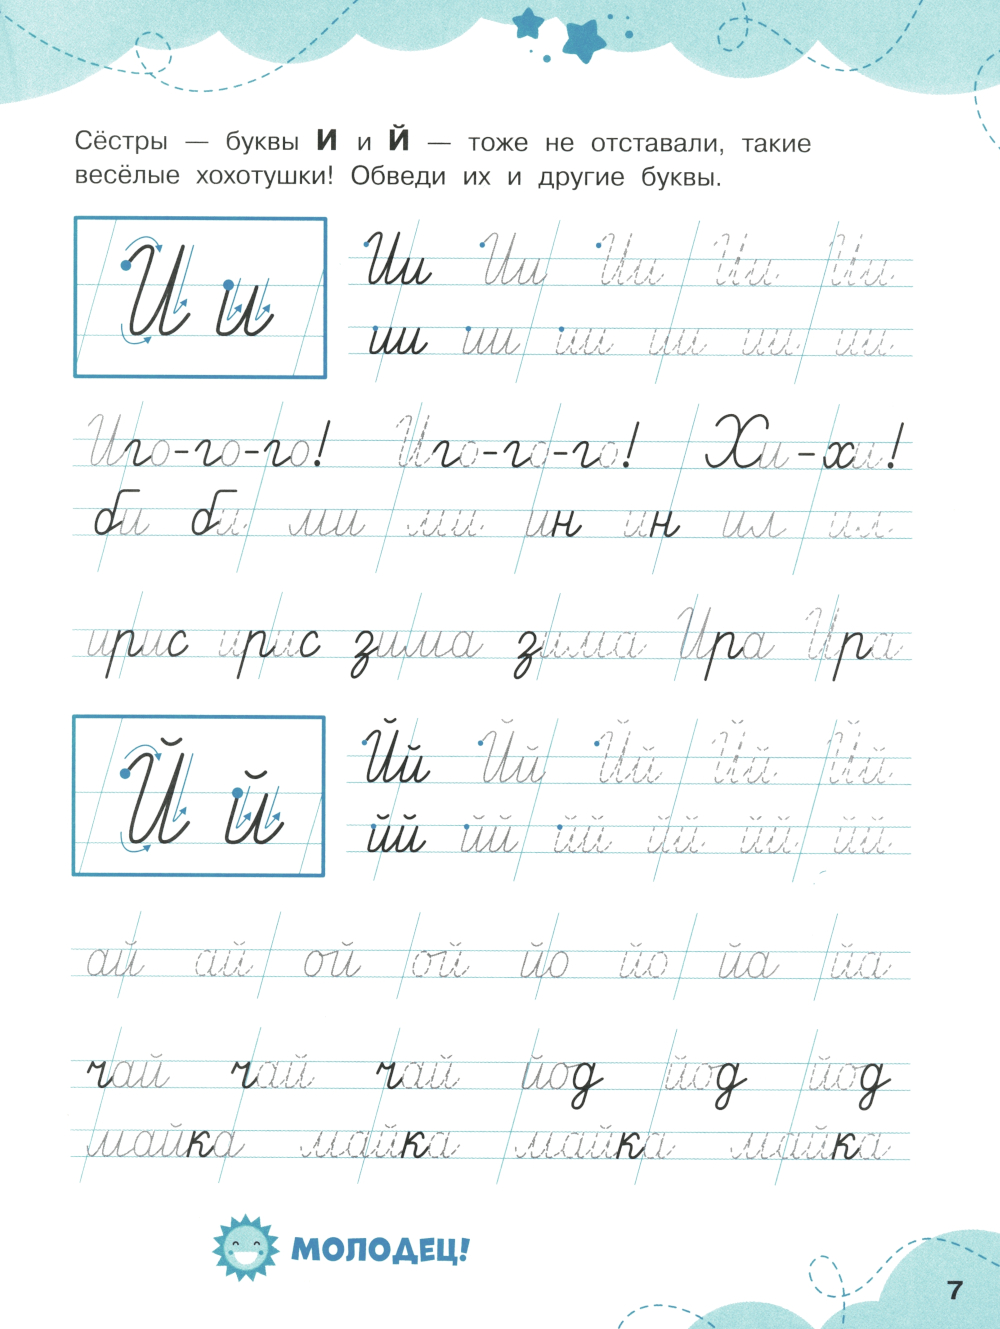 Сёстры — буквы И и Й — тоже не отставали, такие
весёлые хохотушки! Обведи их и другие буквы.
И и
Ии Ии Ии Ии Ии
ии ии ии ии ии ии
Иго-го-го! Иго-го-го! Хи-хи!
би би ми ми ин ин ил ил
ирис ирис зима зима Ира Ира
Й й
Йй Йй Йй Йй Йй
йй йй йй йй йй йй
ай ай ой ой йо йо йа йа
чай чай чай йод йод йод
майка майка майка майка
МОЛОДЕЦ!
7